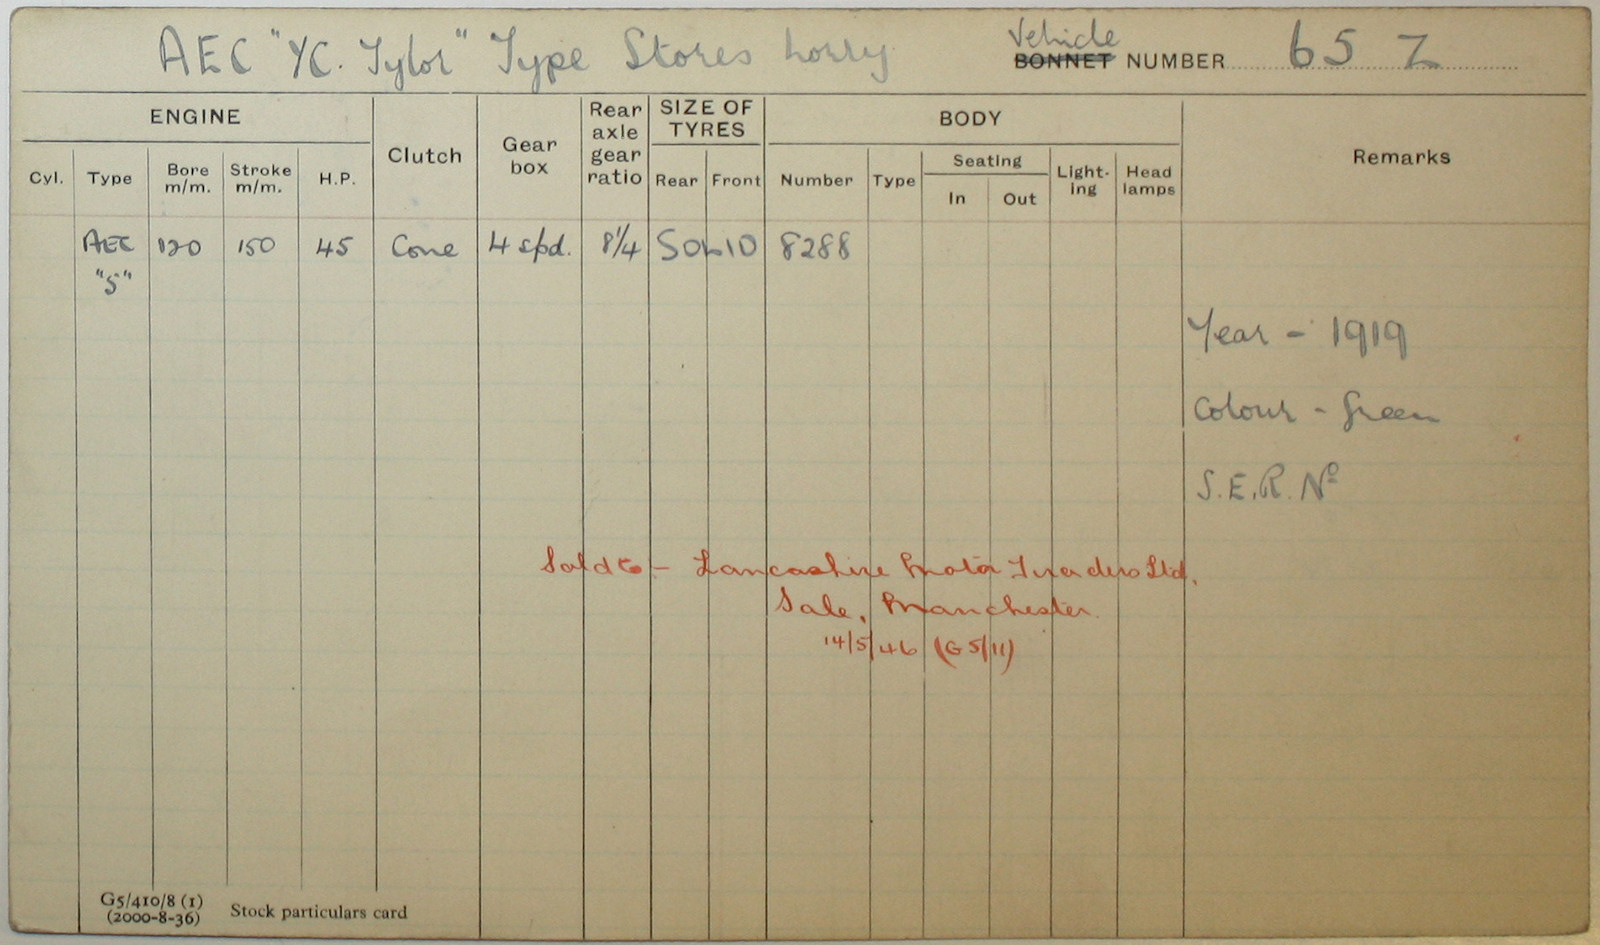 AEC "YC. Tylor" Type Stores Lorry
Vehicle
BONNET NUMBER 65 Z
ENGINE
Clutch
Gear box
Rear axle gear ratio
SIZE OF TYRES
BODY
Remarks
Cyl. Type Bore m/m. Stroke m/m. H.P. Rear Front Number Type Seating In Out Light-ing Head lamps
AEC "5" 120 150 45 Cone 4 spd. 8 1/4 SOLID 8288
Year - 1919
Colour - Green
S.E.R. Nº
Sold to - Lancashire Motor Traders Ltd.
Sale, Manchester.
14/5/46 (G5/11)
G5/410/8 (1)
(2000-8-36) Stock particulars card